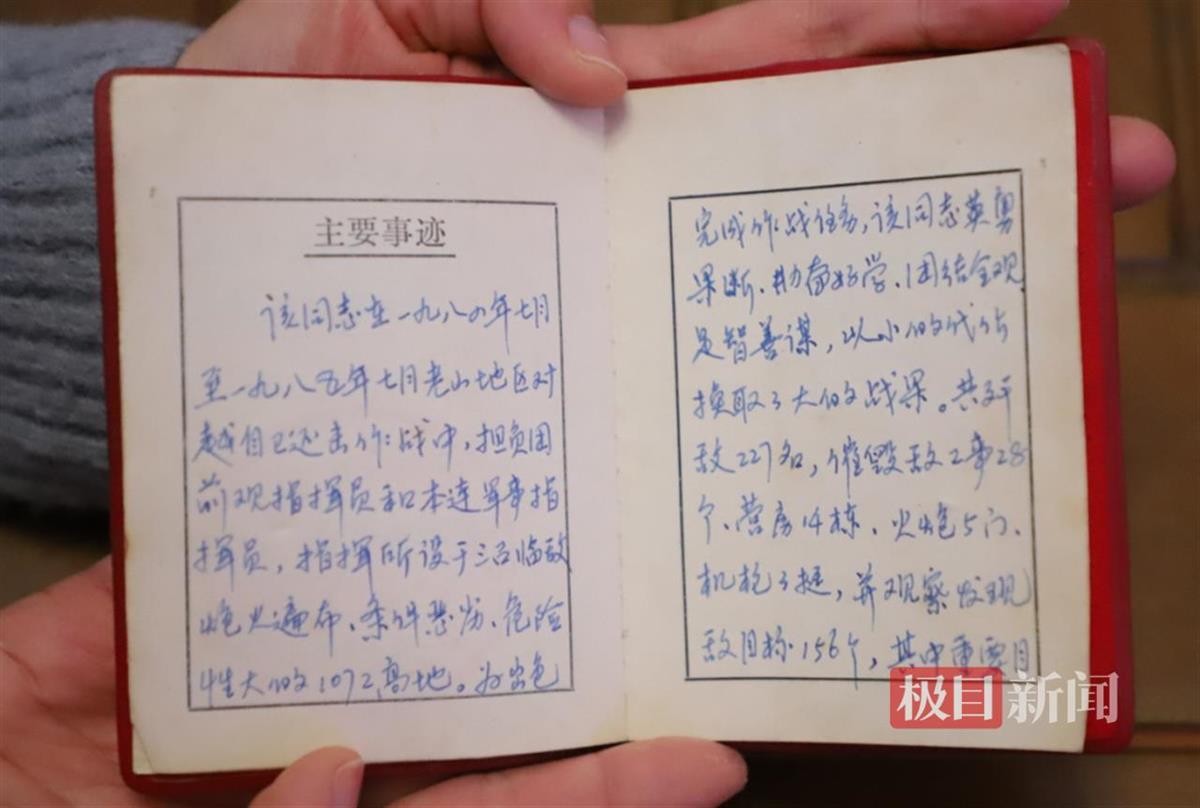 主要事迹
该同志在一九八四年七月
至一九八五年七月老山地区对
越自卫还击作战中，担负团
前观指挥员和本连军事指
挥员，指挥所设于三面临敌
炮火遍布、条件恶劣、危险
性大的1072高地。为出色
完成作战任务，该同志英勇
果断、勤奋好学、团结全观
足智善谋，以小的代价
换取了大的战果。共歼
敌227名，催毁敌工事28
个、营房14栋、火炮5门、
机枪3挺，并观察发现
敌目标156个，其中重要目
极目新闻